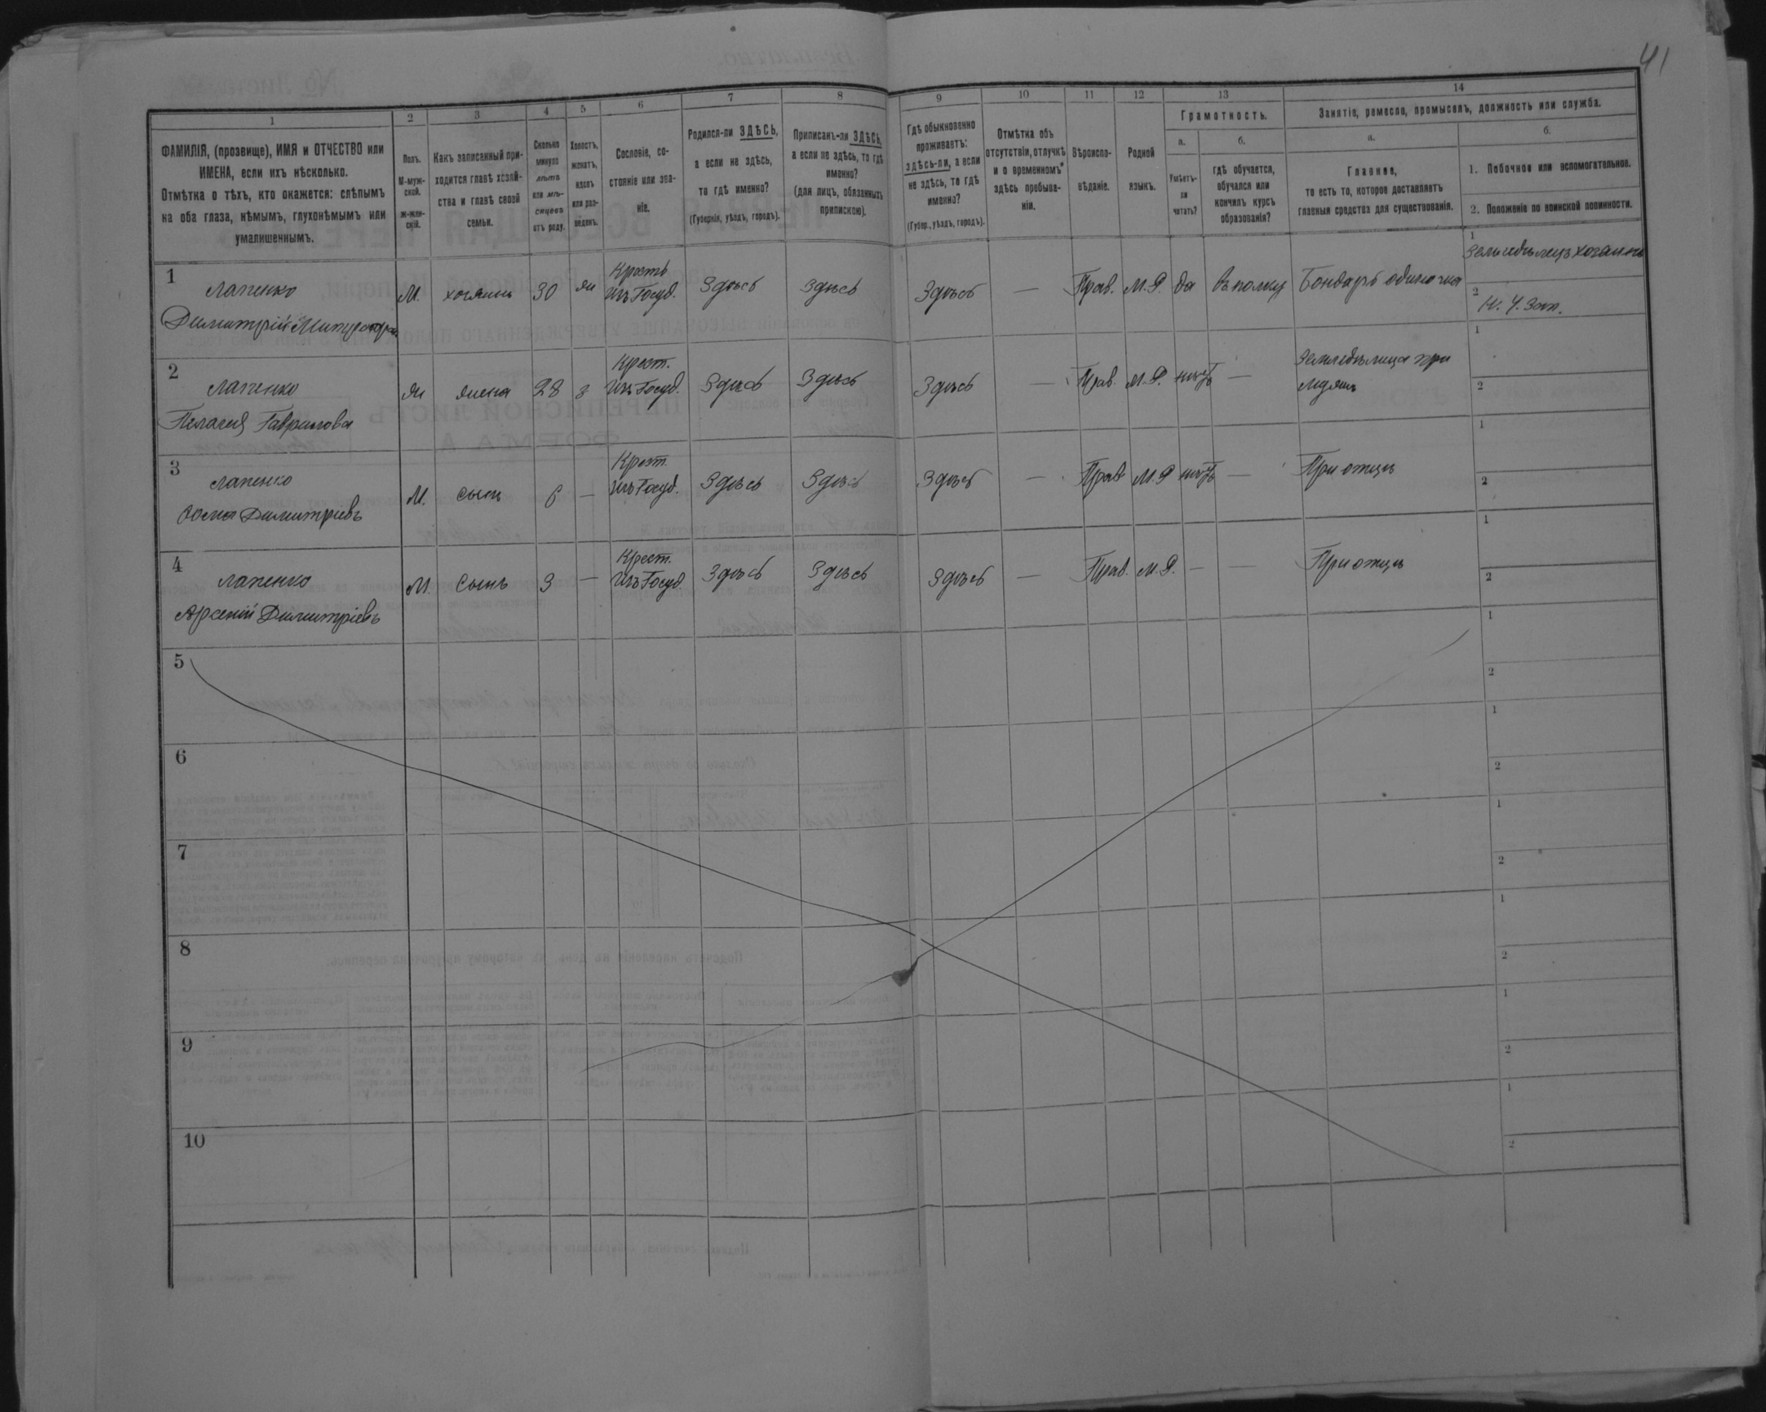 41
1 2 3 4 5 6 7 8 9 10 11 12 13 14
ФАМИЛІЯ, (прозвище), ИМЯ и ОТЧЕСТВО или
ИМЕНА, если ихъ нѣсколько.
Отмѣтка о тѣхъ, кто окажется: слѣпымъ
на оба глаза, нѣмымъ, глухонѣмымъ или
умалишеннымъ.
Полъ.
М-муж-
ской.
ж-жен-
скій.
Какъ записанный при-
ходится главѣ хозяй-
ства и главѣ своей
семьи.
Сколько
минуло
лѣтъ
или мѣ-
сяцевъ
отъ роду.
Холостъ,
женатъ,
вдовъ
или раз-
веденъ.
Сословіе, со-
стояніе или зва-
ніе.
Родился-ли ЗДѢСЬ,
а если не здѣсь,
то гдѣ именно?
(Губернія, уѣздъ, городъ).
Приписанъ-ли ЗДѢСЬ,
а если не здѣсь, то гдѣ
именно?
(для лицъ, обязанныхъ
припискою).
Гдѣ обыкновенно
проживаетъ:
здѣсь-ли, а если
не здѣсь, то гдѣ
именно?
(Губер., уѣздъ, городъ).
Отмѣтка объ
отсутствіи, отлучкѣ
и о временномъ
здѣсь пребыва-
ніи.
Вѣроиспо-
вѣданіе.
Родной
языкъ.
Грамотность.
а.
Умѣетъ-
ли
читать?
б.
гдѣ обучается,
обучался или
кончилъ курсъ
образованія?
Занятіе, ремесло, промыселъ, должность или служба.
а.
Главное,
то есть то, которое доставляетъ
главныя средства для существованія.
б.
1. Побочное или вспомогательное.
2. Положеніе по воинской повинности.
1
Лапенко
Димитрій
М. хозяинъ 30 жн
Крест
Изъ Госуд.
Здѣсь Здѣсь Здѣсь — Прав. М.Р. да въ полку Бондарь одиночка
1
2
2
Лапенко
Пелагея Гаврилова
жн жена 28 з
Крест.
Изъ Госуд.
Здѣсь Здѣсь Здѣсь — Прав. М.Р. нѣтъ — Земледѣлица при
мужѣ
1
2
3
Лапенко
Ѳома Димитріевъ
М. сынъ 6 —
Крест.
Изъ Госуд.
Здѣсь Здѣсь Здѣсь — Прав М.Р нѣтъ — При отцѣ
1
2
4
Лапенко
Арсеній Димитріевъ
М. сынъ 3 —
Крест.
Изъ Госуд.
Здѣсь Здѣсь Здѣсь — Прав. М.Р. — — При отцѣ
1
2
5
1
2
6
1
2
7
1
2
8
1
2
9
1
2
10
1
2